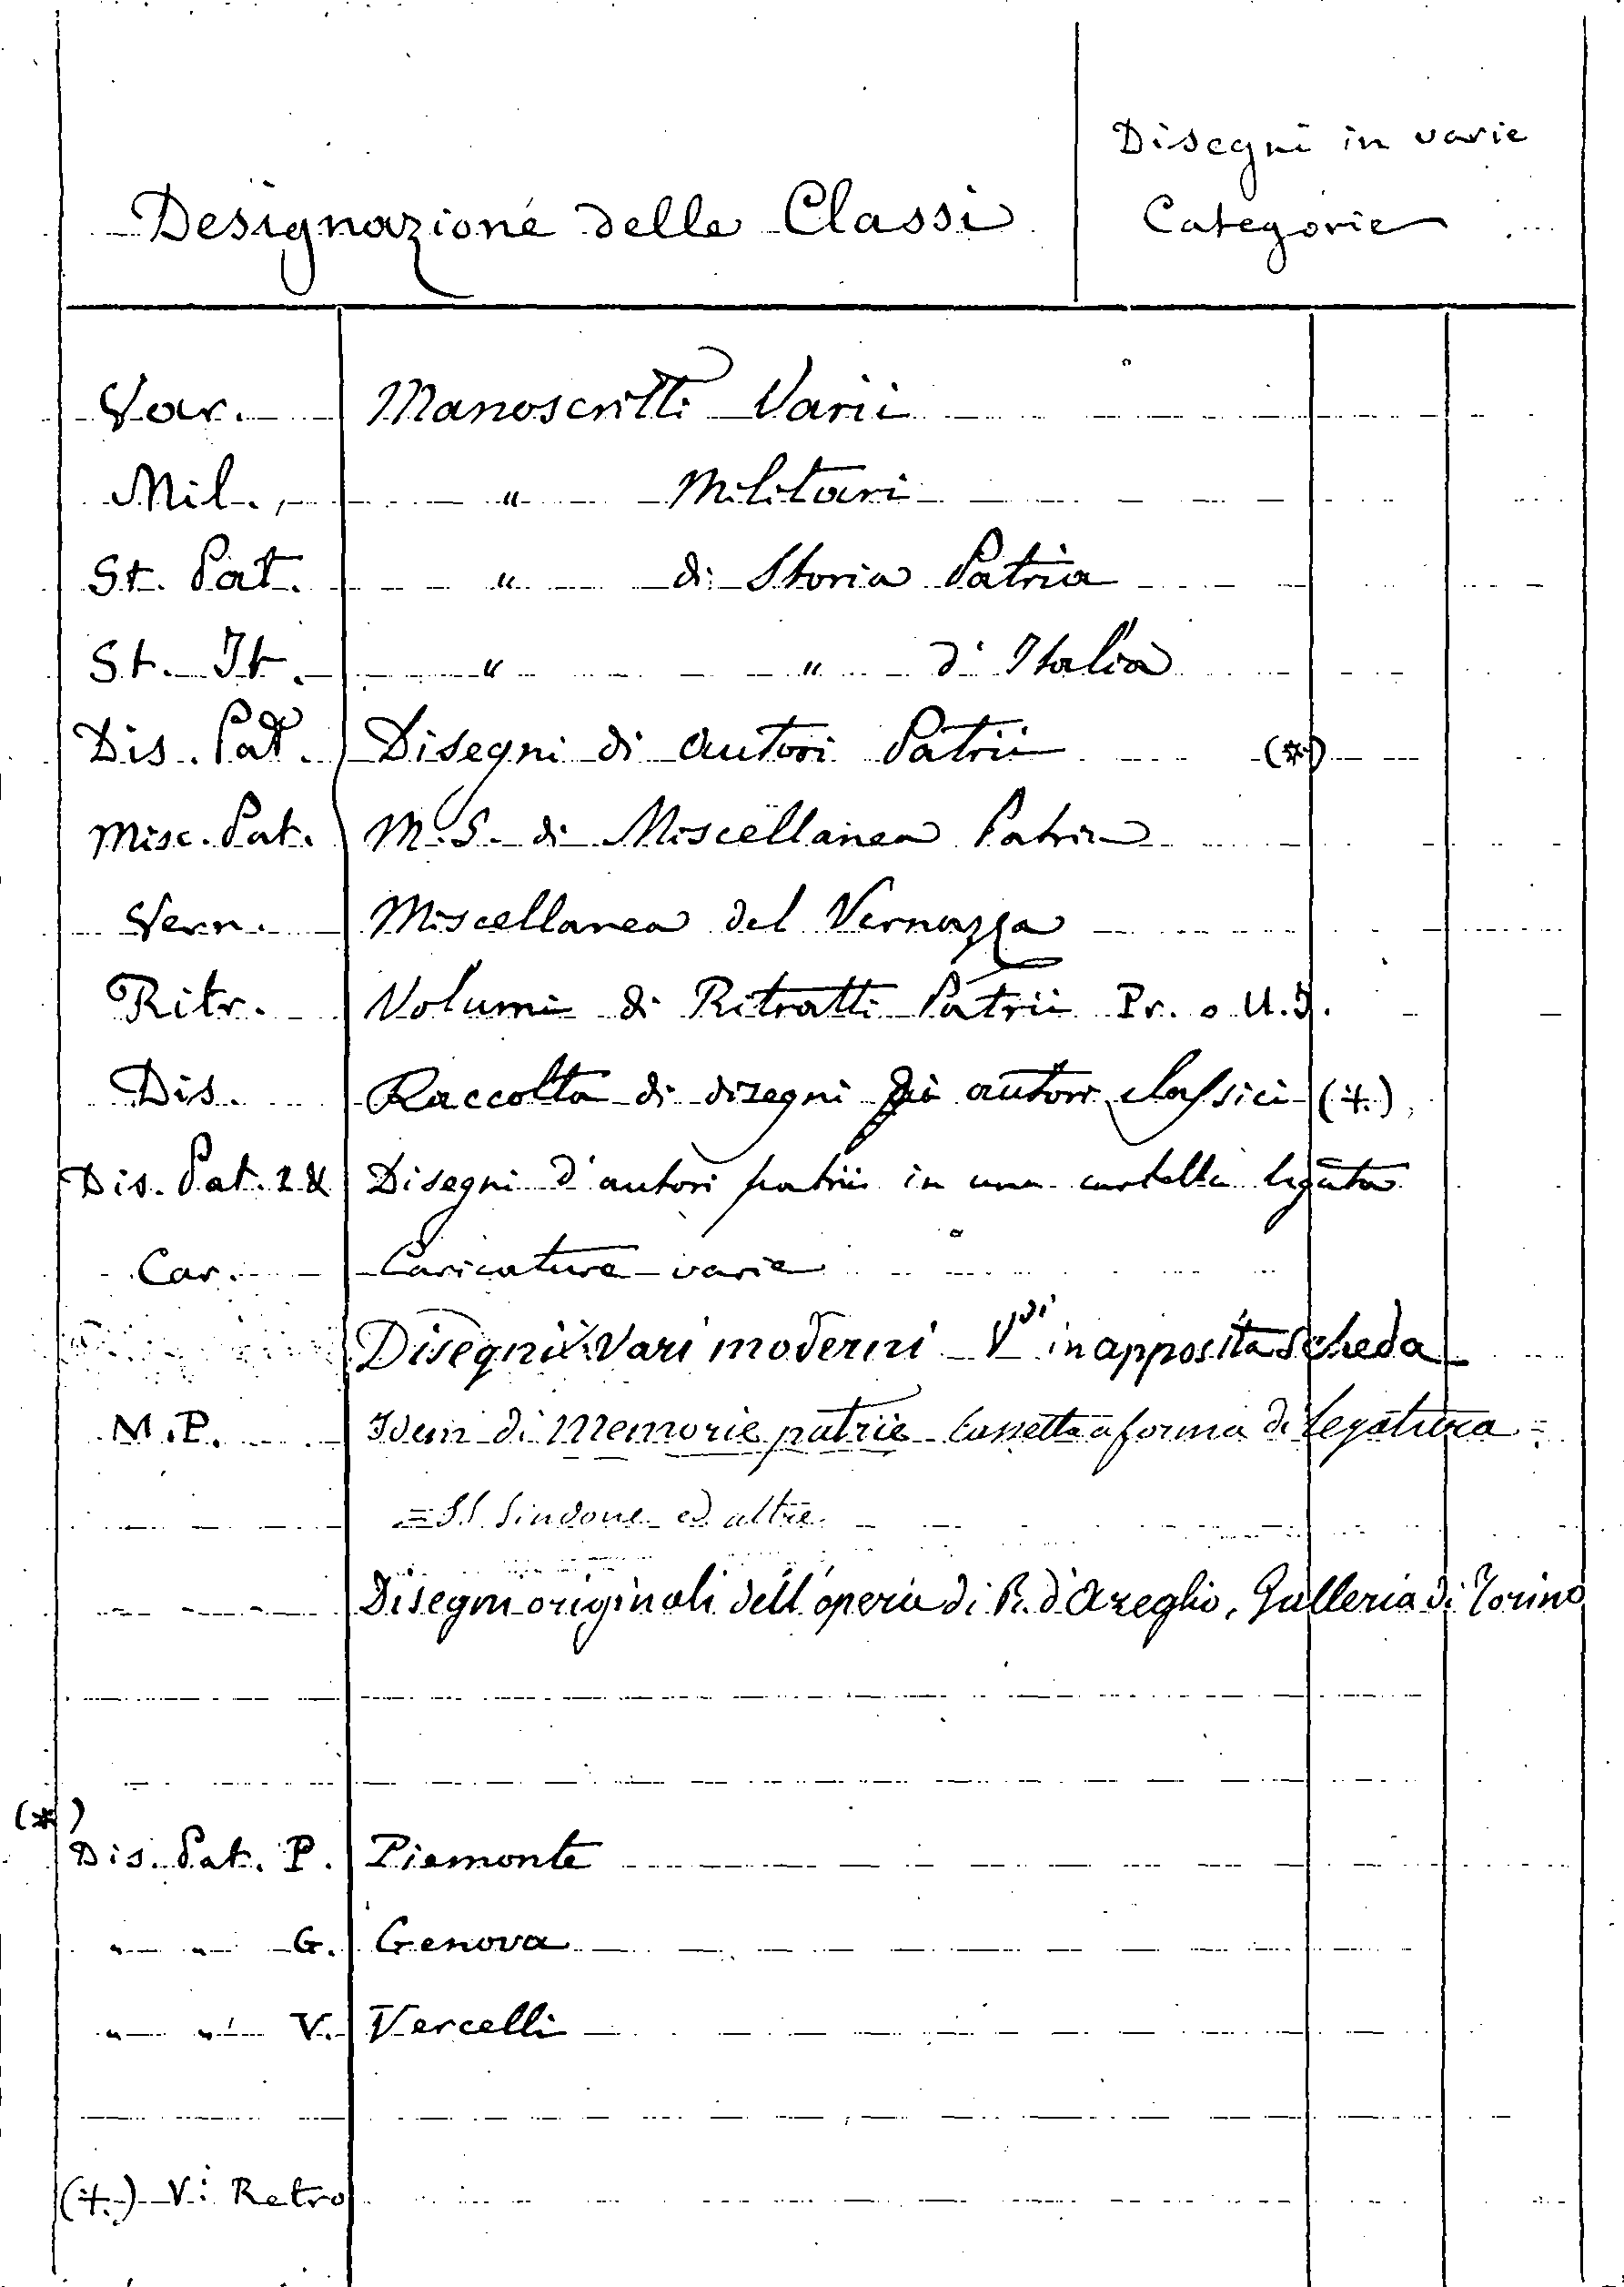 Disegni in varie
Designazione delle Classi Categorie
Var. Manoscritti Varii
Mil. " Militari
St. Pat. " di Storia Patria
St. It. " " d'Italia
Dis. Pat. Disegni di autori Patrii (*)
Misc. Pat. M.S. di Miscellanea Patria
Vern. Miscellanea del Vernazza
Ritr. Volumi di Ritratti Patrii Pr. o U.I.
Dis. Raccolta di disegni di autori classici (‡)
Dis. Pat. Disegni d'autori patrii in una cartella legata
Car. Caricature varie
Disegni Vari moderni Vdi in apposita scheda
M.P. Idem di Memorie patrie Cassetta a forma di legatura =
= SS. Sindone ed altre.
Disegni originali dell'opera di R. d'Azeglio, Galleria di Torino
(*)
Dis. Pat. P. Piemonte
" " G. Genova
" " V. Vercelli
(‡) V: Retro